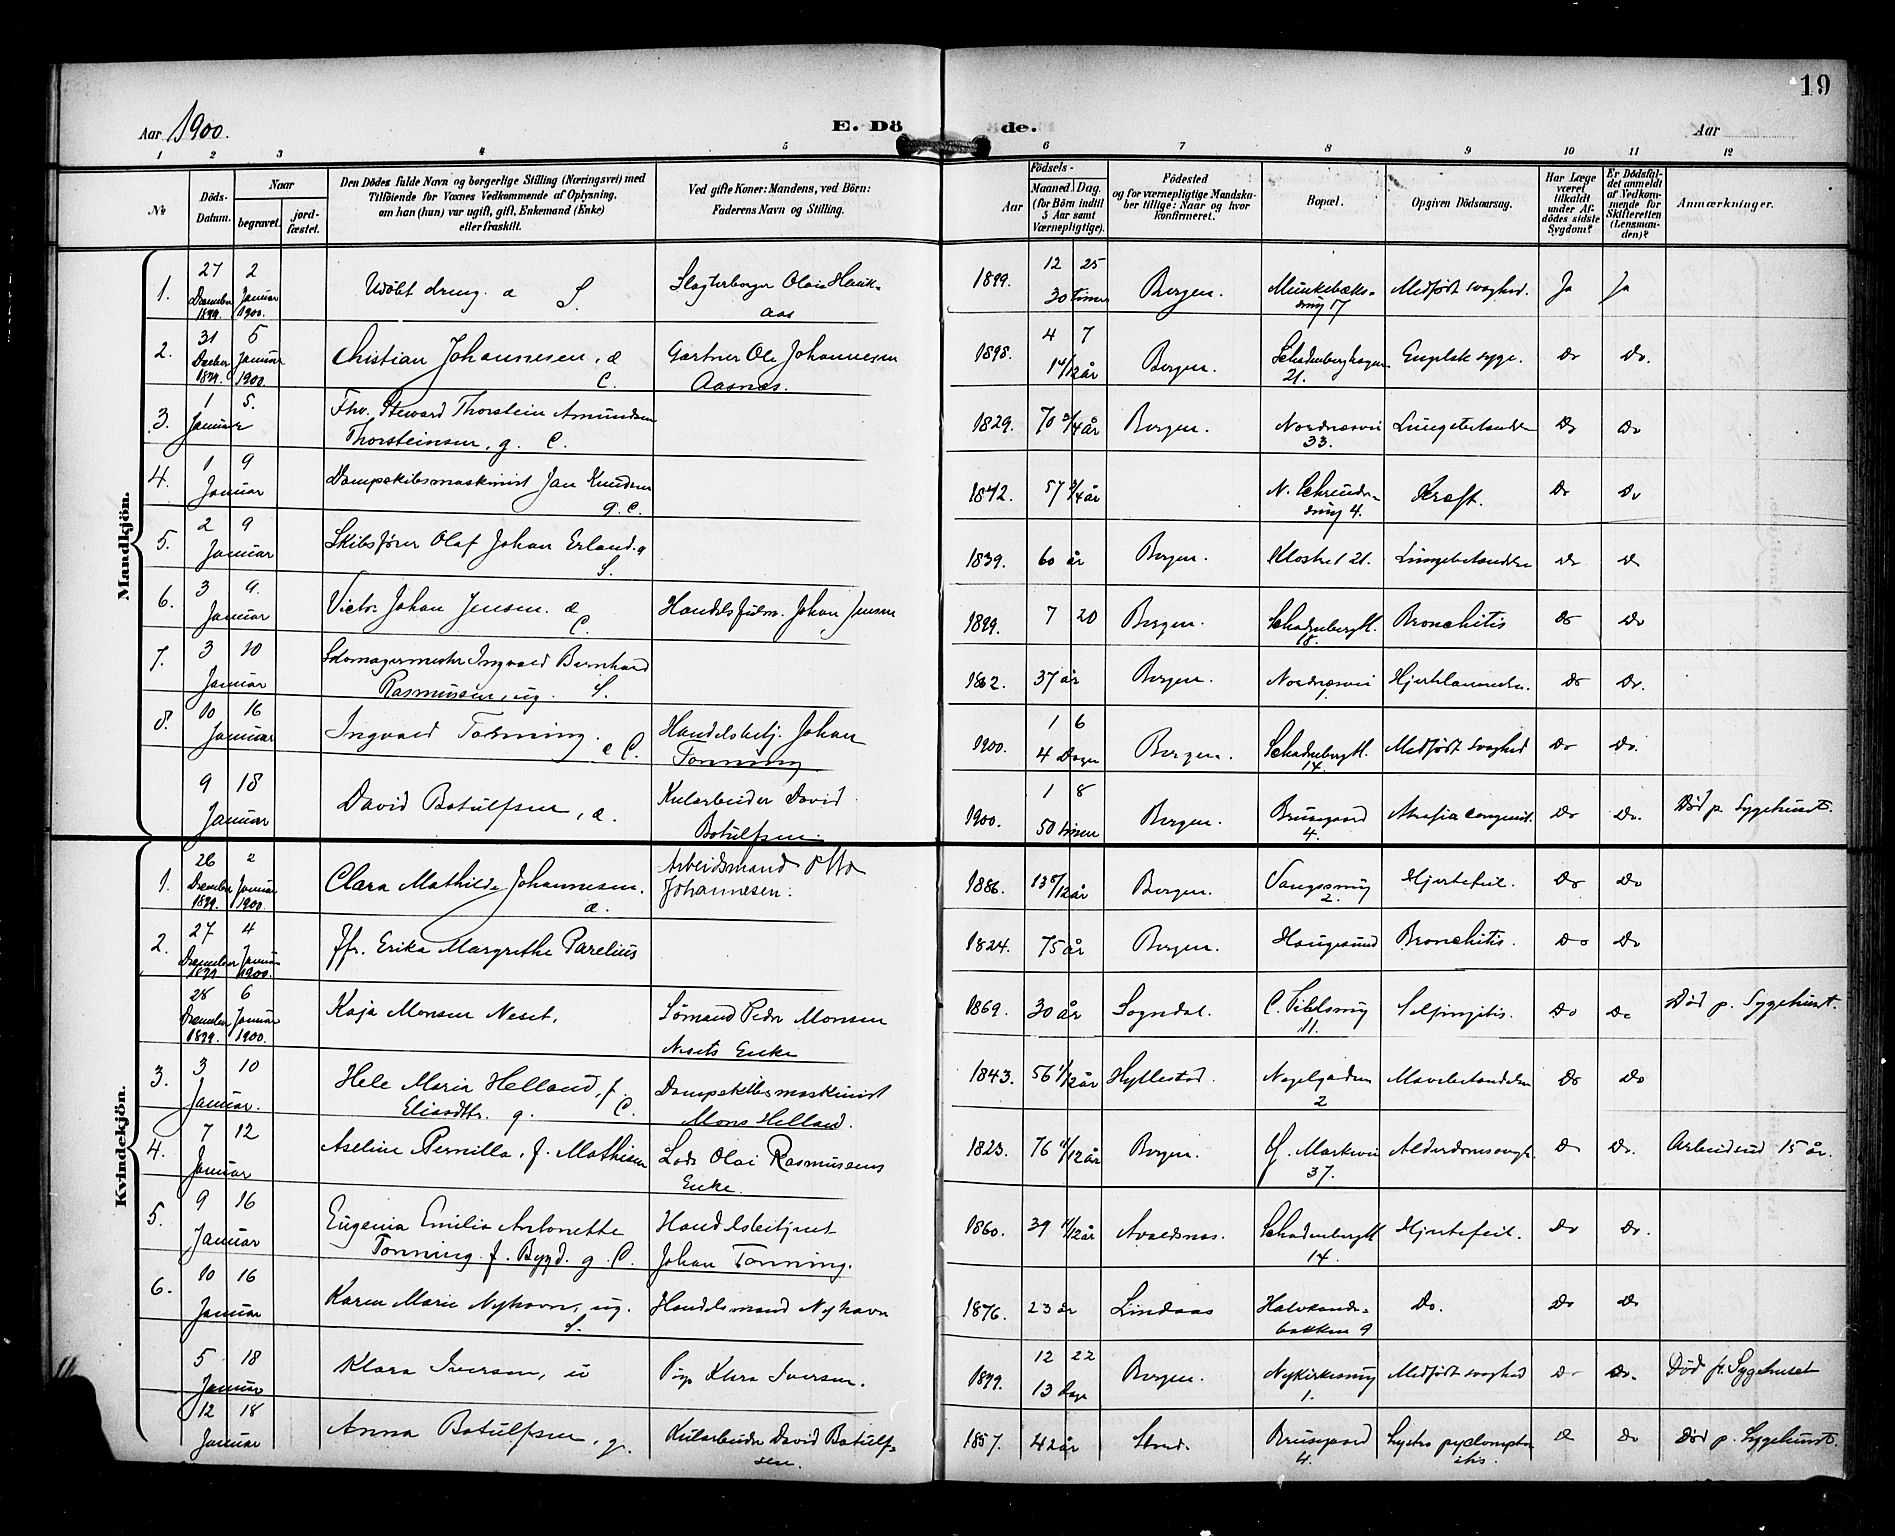 19
Aar 1900.
E. Dö de.
Aar
1 2 3 4 5 6 7 8 9 10 11 12
№
Döds-
Datum.
Naar
begravet.
jord-
fæstet.
Den Dödes fulde Navn og borgerlige Stilling (Næringsvei) med
Tilföiende for Voxnes Vedkommende af Oplysning,
om han (hun) var ugift, gift, Enkemand (Enke)
eller fraskilt.
Ved gifte Koner: Mandens, ved Börn:
Faderens Navn og Stilling.
Födsels-
Aar
Maaned. Dag.
(for Börn indtil
5 Aar samt
Værnepligtige).
Födested
og for værnepligtige Mandska-
ber tillige: Naar og hvor
konfirmeret.
Bopæl.
Opgiven Dödsaarsag.
Har Læge
været
tilkaldt
under Af-
dödes sidste
Sygdom?
Er Dödsfal-
det anmeldt
af Vedkom-
mende for
Skifteretten
(Lensman-
den)?
Anmærkninger.
Mandkjön.
1. 27 December 1899. 2 Januar 1900. Udöbt dreng. a S. Olai Hauk-
aas 1899. 12 25 30 timer Bergen. Munkebæks-
smug 17 Medfödt svaghed. Ja Ja
2. 31 Decbr 1899. 5 Januar 1900. Christian Johannesen, a C. Gartner Ole Johannesen
Aasnæs. 1898. 4 7 Bergen. 21. Engelsk syge. Do Do.
3. 1 5. Januar Fhv. Steward Thorstein Amundsen
Thorsteinsen, g. C. 1829. 70 3/4 år Bergen. Nordnæsvei
33. Do Do
4. 1 9 Januar Dampskibsmaskinist Jan Knudsen
g. C. 1842. 57 år 4. Kræft. Do Do
5. 2 9 Januar Skibsförer Olaf Johan Erland. g
S. 1839. 60 år Bergen. Klostret 21. Do Do
6. 3 9. Januar Victor Johan Jensen. a
C. Johan Jensen 1899. 7 20 Bergen. 18. Bronchitis Do Do
7. 3 10 Januar Skomagermester Ingvald Bernhard
Rasmussen, ug. S. 1862. 37 år Bergen. Nordnæsvei
1. Do Do.
8. 10 16 Januar Ingvald Tonning.
a C. Handelsbetj. Johan
Tonning 1900. 1 6 4 Dager Bergen. 14. Medfödt svaghed Do Do.
9 18 Januar David Botulfsen, a. Kularbeider David
Botulfsen. 1900. 1 8 50 timer Bergen. Brusegaard
4. Do Do. Död p. Sygehuset.
Kvindekjön.
1. 26 December 1899. 2 Januar 1900. Clara Mathilde Johannesen.
a. Arbeidsmand Otto
Johannesen. 1886. 13 år Bergen. 2. Hjertefeil. Do Do
2. 27 December 1899 4 Januar 1900. Jfr. Erika Margrethe Parelius 1824. 75 år Bergen. Haugesund Bronchitis. Do Do
28 December 1899. 6 Januar 1900. Kaja Monsen Neset. Sömand Peder Monsen
Nesets Enke 1869. 30 år Sogndal. 11. Salpingitis. Do Do Död p. Sygehuset.
3. 3 10 Januar. Hele Maria Helland, f.
g. C. Dampskibsmaskinist
Mons Helland. 1843. 56 1/12 år Hyllestad. Nagelgaden
2 Do Do
4. 7 12 Januar Aseline Pernilla, f. Mathisen Lods Olai Rasmussens
Enke. 1823. 76 år Bergen. Markvei
37. Do Do. 15 år.
5. 9 16 Januar Eugenia Emilie Antonette
Tonning f. Bygd. g. C. Handelsbetjent
Johan Tonning. 1860. 39 år Avaldsnæs. 14. Hjertefeil. Do Do.
6. 10 16 Januar Karen Marie Nyhavn, ug.
S. Handelsmand Nyhavn 1876. 23 år Lindaas bakken 9 Do. Do Do
5 18 Januar Klara Iversen, u Pige Klara Iversen. 1899. 12 22 13 dage Bergen. Nykirkesmug
1. Medfödt svaghed Do Do. Död p. Sygehuset
12 18 Januar Anna Botulfsen, g. Kularbeider David Botulf-
sen. 1857. 42 år Brusegaard
4. Do Do Död p. Sygehuset.